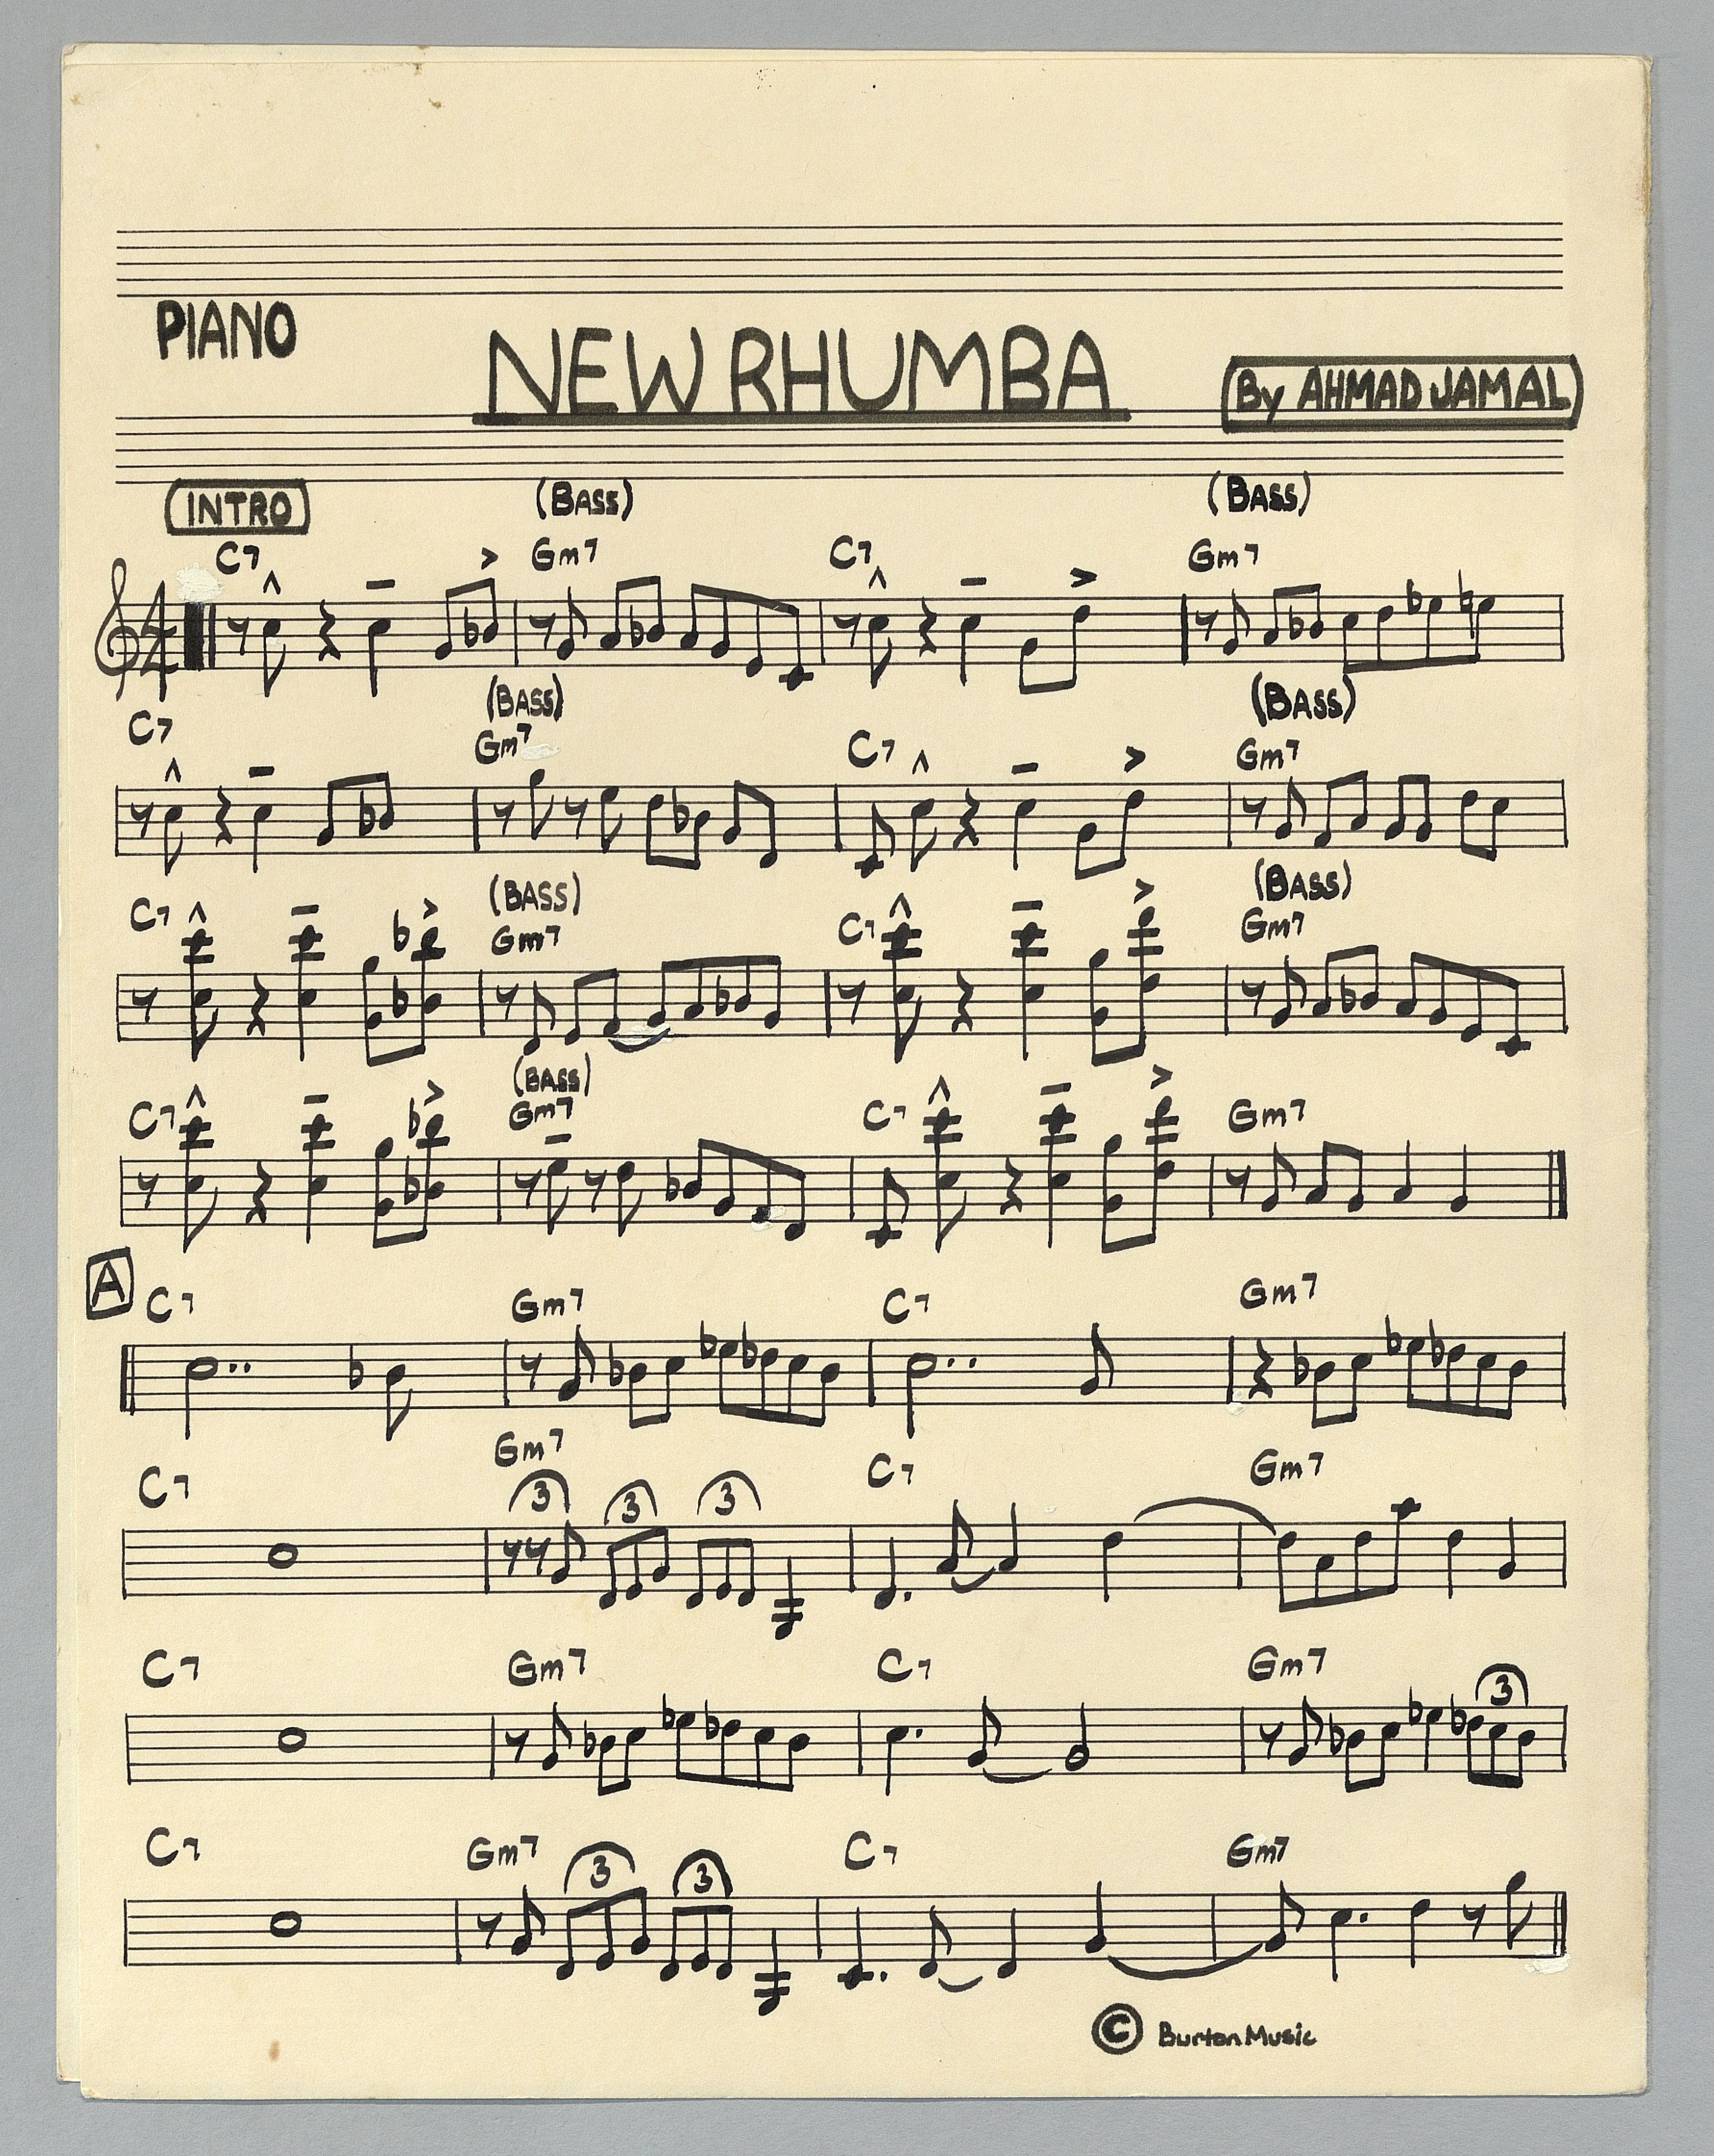 PIANO
NEW RHUMBA
By AHMAD JAMAL
INTRO
(BASS) (BASS)
C7 Gm7 C7 Gm7
4
(BASS) (BASS)
C7 Gm7 C7 Gm7
(BASS) (BASS)
C7 Gm7 C7 Gm7
(BASS)
C7 Gm7 C7 Gm7
A
C7 Gm7 C7 Gm7
C7 Gm7 C7 Gm7
3 3 3
C7 Gm7 C7 Gm7
3
C7 Gm7 C7 Gm7
3 3
© Burton Music